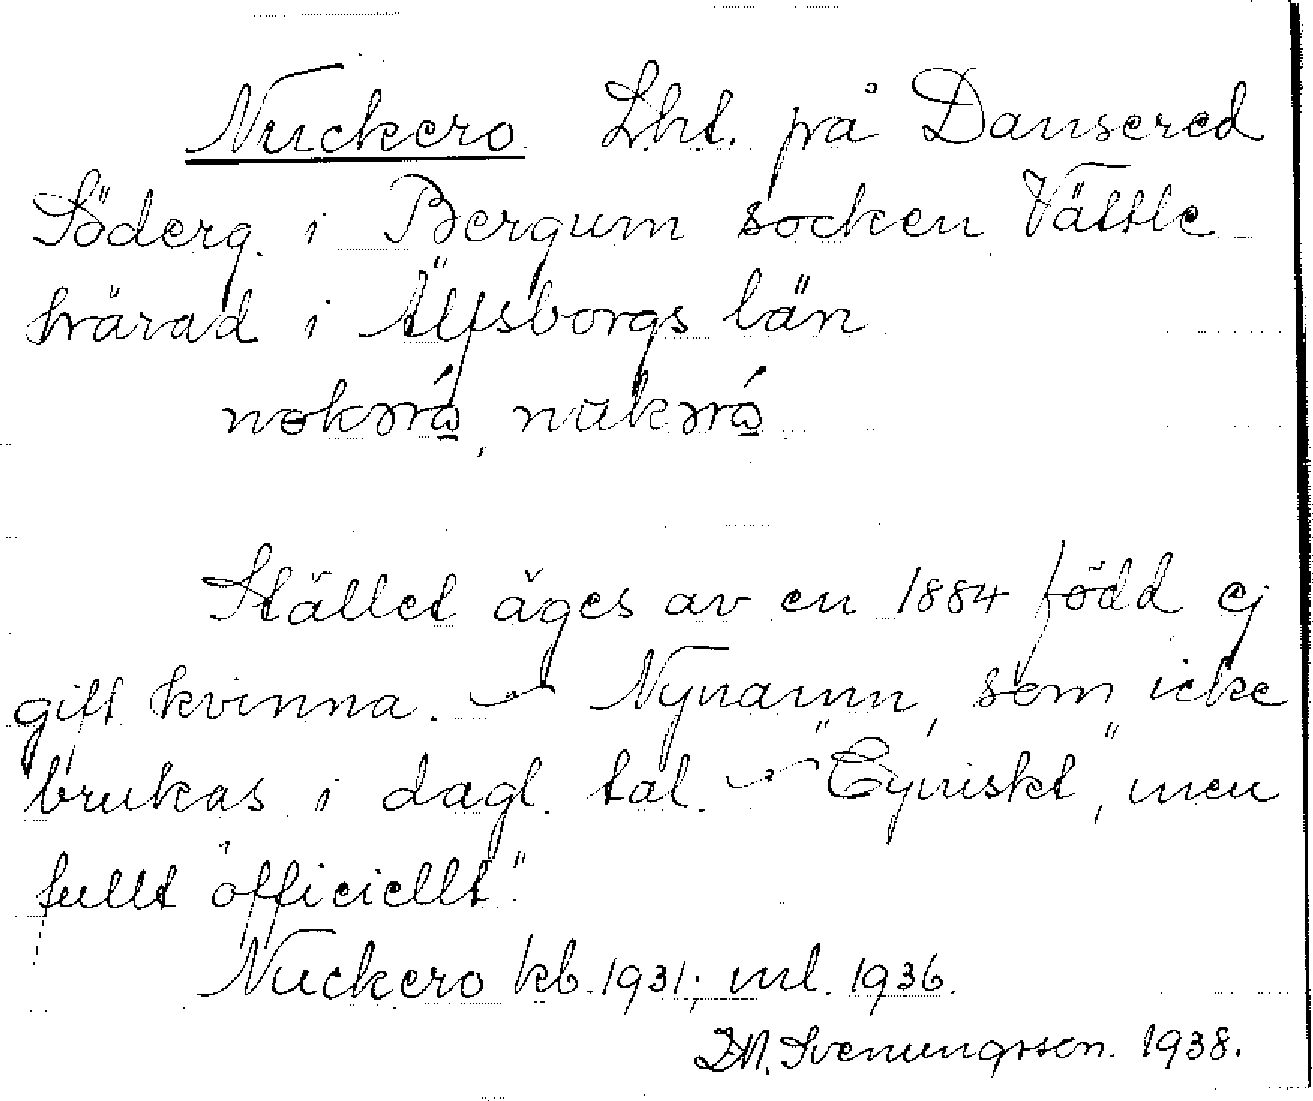 Nuckero Lht. på Dansered
Söderg. i Bergum socken Vättle
härad i Älfsborgs län
Stället äges av en 1884 född ej
gift kvinna. — Nynamn, som icke
brukas i dagl. tal. — "Cyniskt", men
fullt "officiellt".
Nuckero kb. 1931; ml. 1936.
Svenungsson. 1938.